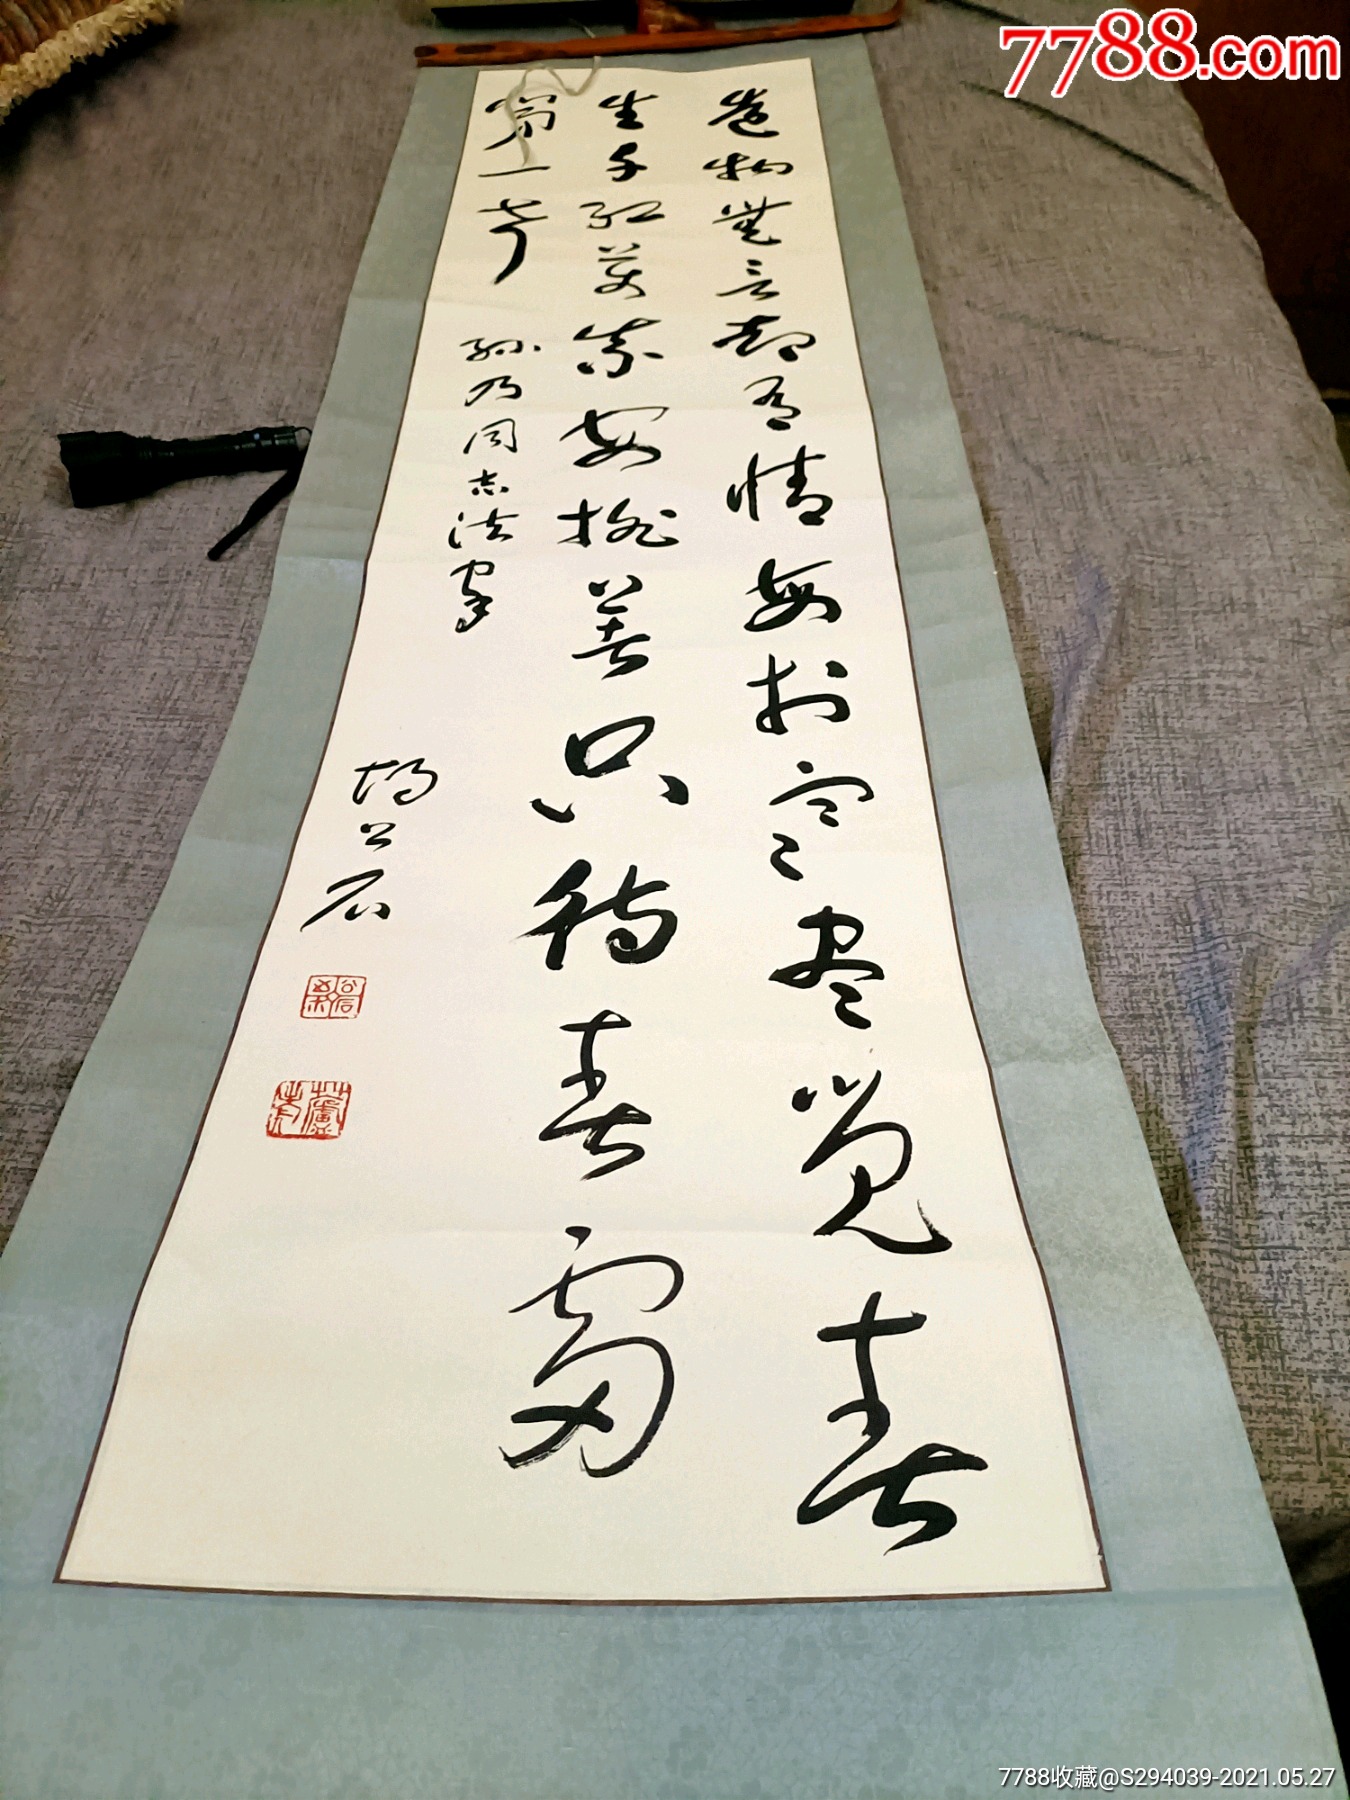 造物無言却有情每於寒尽觉春
生千红萬紫安排著只待春雷
第一声
孫乃同志法家
胡公石
7788.com
7788收藏@S294039-2021.05.27